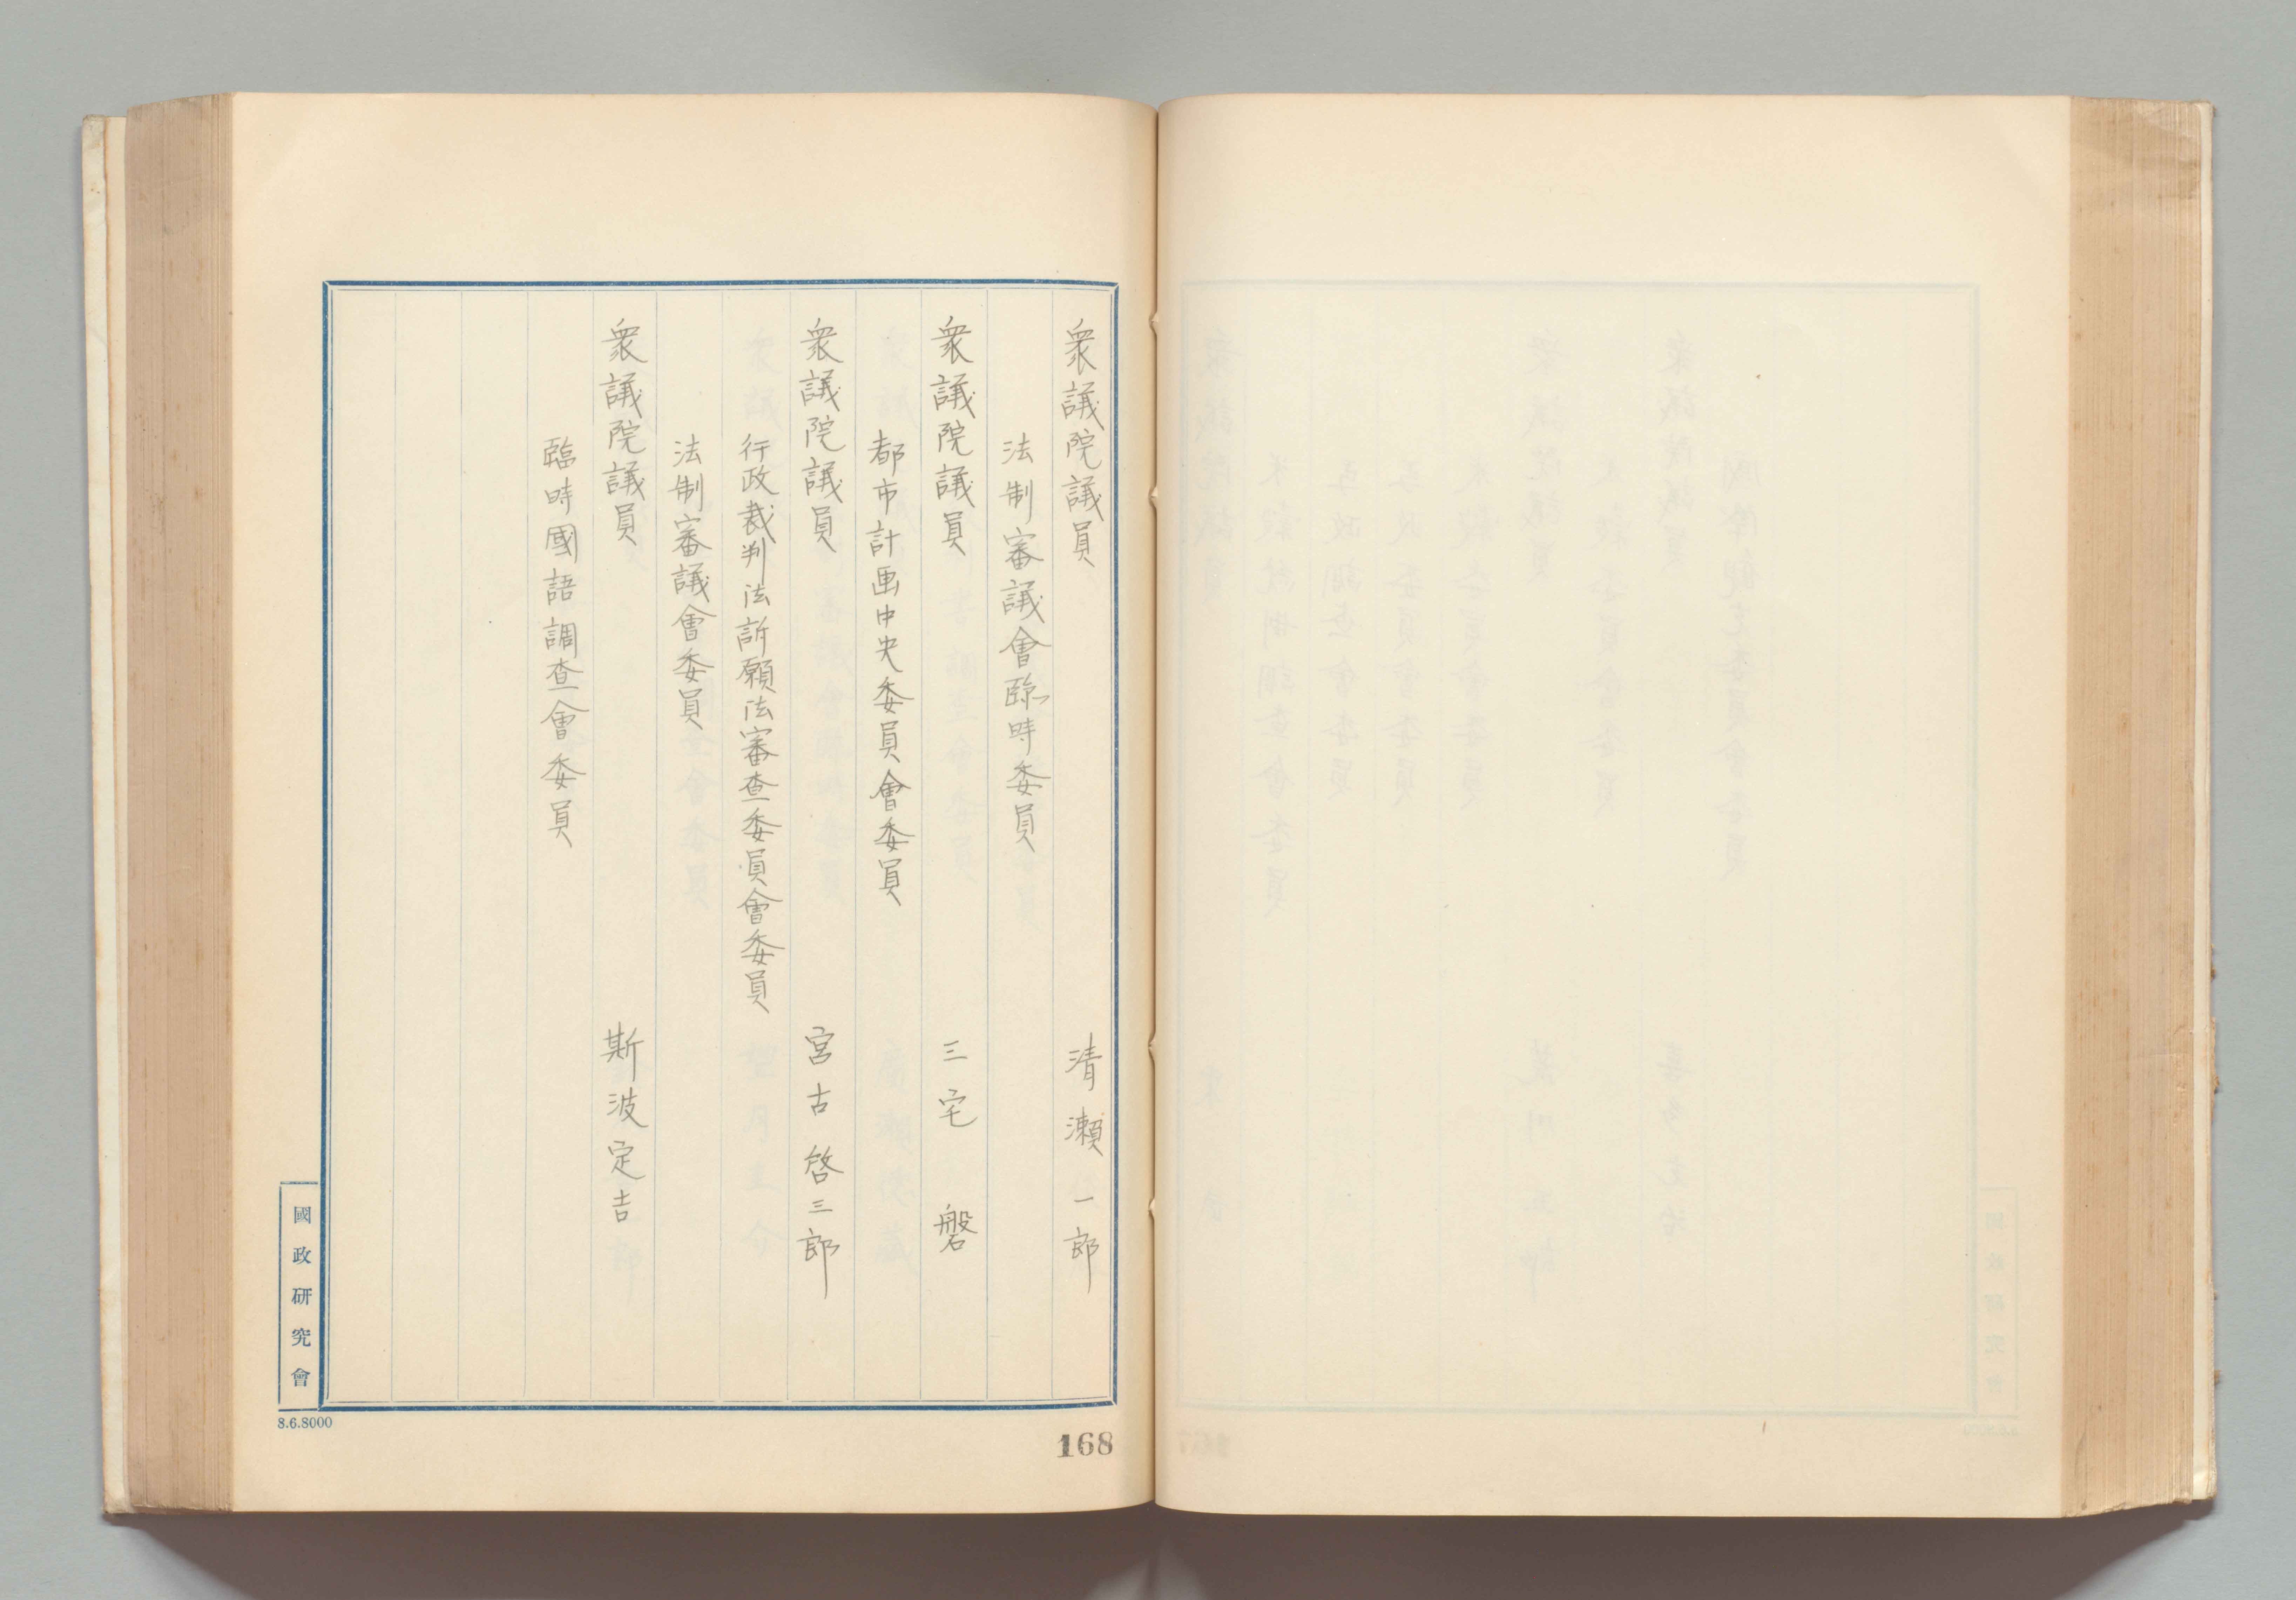 衆議院議員 清瀬一郎
法制審議會臨時委員
衆議院議員 三宅磐
都市計画中央委員會委員
衆議院議員 宮古啓三郎
行政裁判法訴願法審査委員會委員
法制審議會委員
衆議院議員 斯波定吉
臨時國語調査會委員
國政研究會
8.6.8000
168